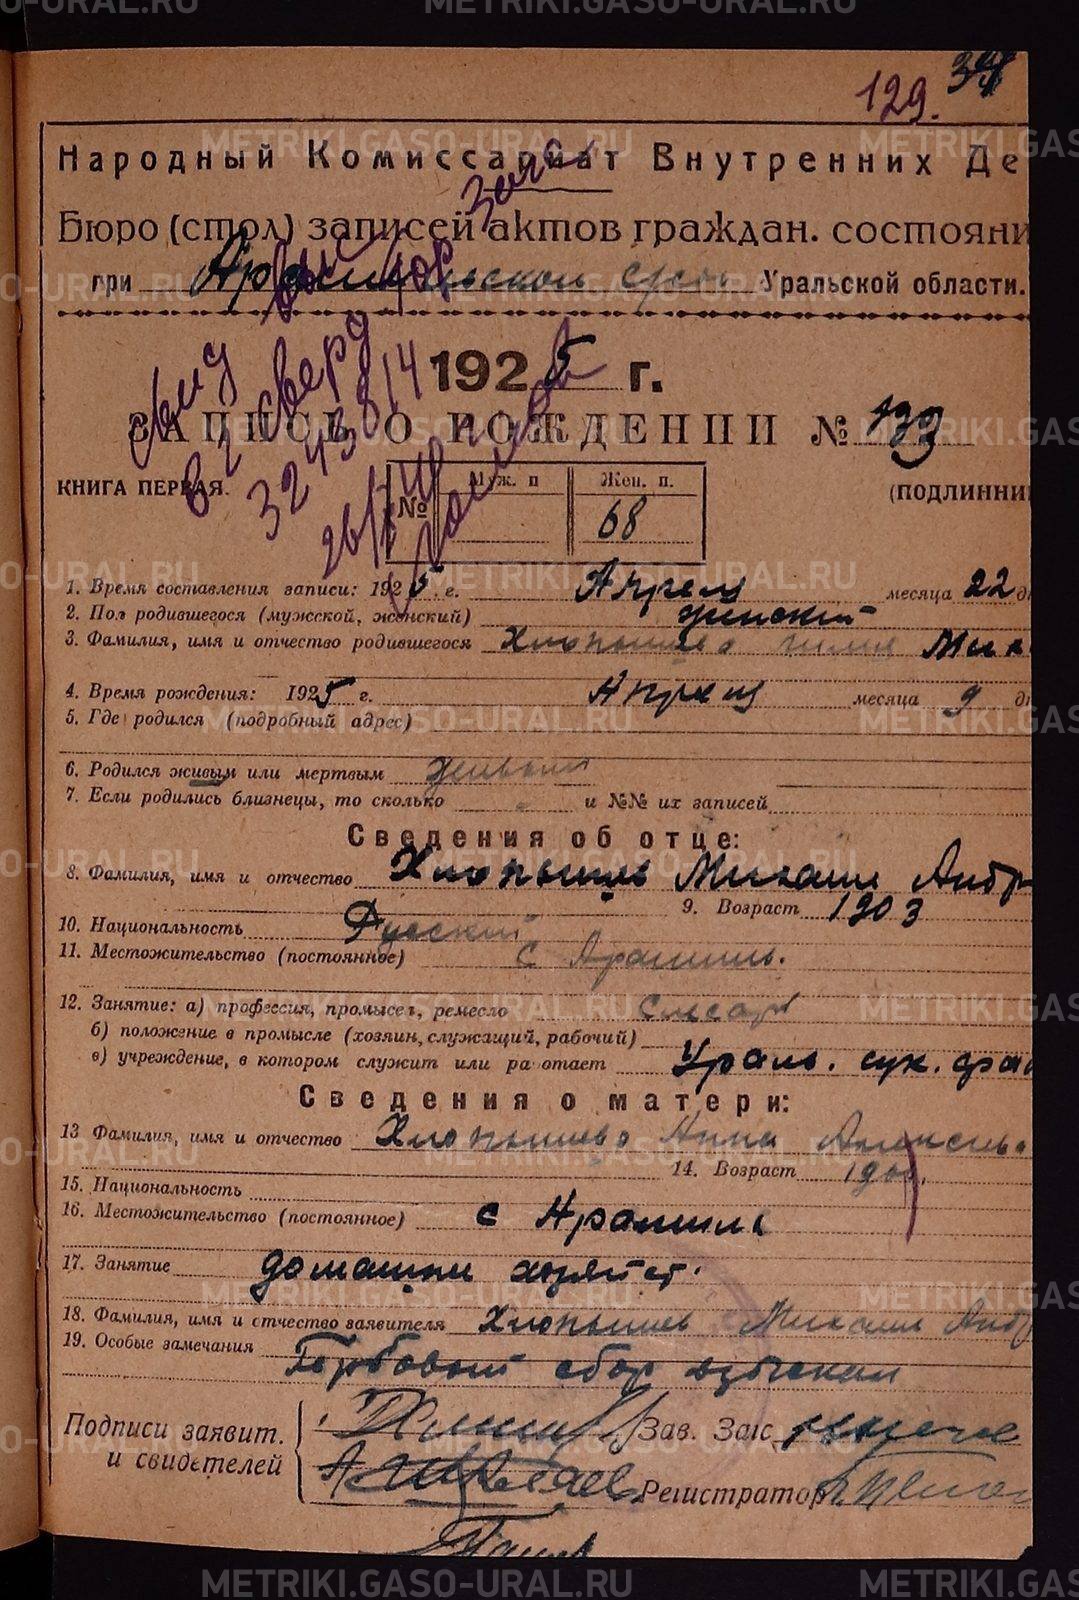 129. 34
Народный Комиссариат Внутренних Де
Бюро (стол) записей актов граждан. состояни
при Арамильском Уральской области.
1925 г.
ЗАПИСЬ О РОЖДЕНИИ № 133
КНИГА ПЕРВАЯ. (ПОДЛИННИ
№ Муж. п Жен. п.
68
свид
в г сверд
32438/4
1. Время составления записи: 1925 г. Апреля месяца 22 д
2. Пол родившегося (мужской, женский) женский
3. Фамилия, имя и отчество родившегося Хлопышева Мих
4. Время рождения: 1925 г. Апреля месяца 9 д
5. Где родился (подробный адрес)
6. Родился живым или мертвым живым
7. Если родились близнецы, то сколько и №№ их записей
Сведения об отце:
8. Фамилия, имя и отчество Хлопышев Михаил Андр
9. Возраст 1903
10. Национальность Русский
11. Местожительство (постоянное) с Арамиль.
12. Занятие: а) профессия, промысел, ремесло слесарь
б) положение в промысле (хозяин, служащий, рабочий)
в) учреждение, в котором служит или работает Ураль. сук. фаб
Сведения о матери:
13 Фамилия, имя и отчество Хлопышева Анна Алексеев
14. Возраст
15. Национальность
16. Местожительство (постоянное) с Арамиль
17. Занятие домашн хозяйст.
18. Фамилия, имя и отчество заявителя Хлопышев Михаил Андр
19. Особые замечания Гербовый сбор взыскан
Подписи заявит.
и свидетелей
Зав. Загс
Регистратор
METRIKI.GASO-URAL.RU